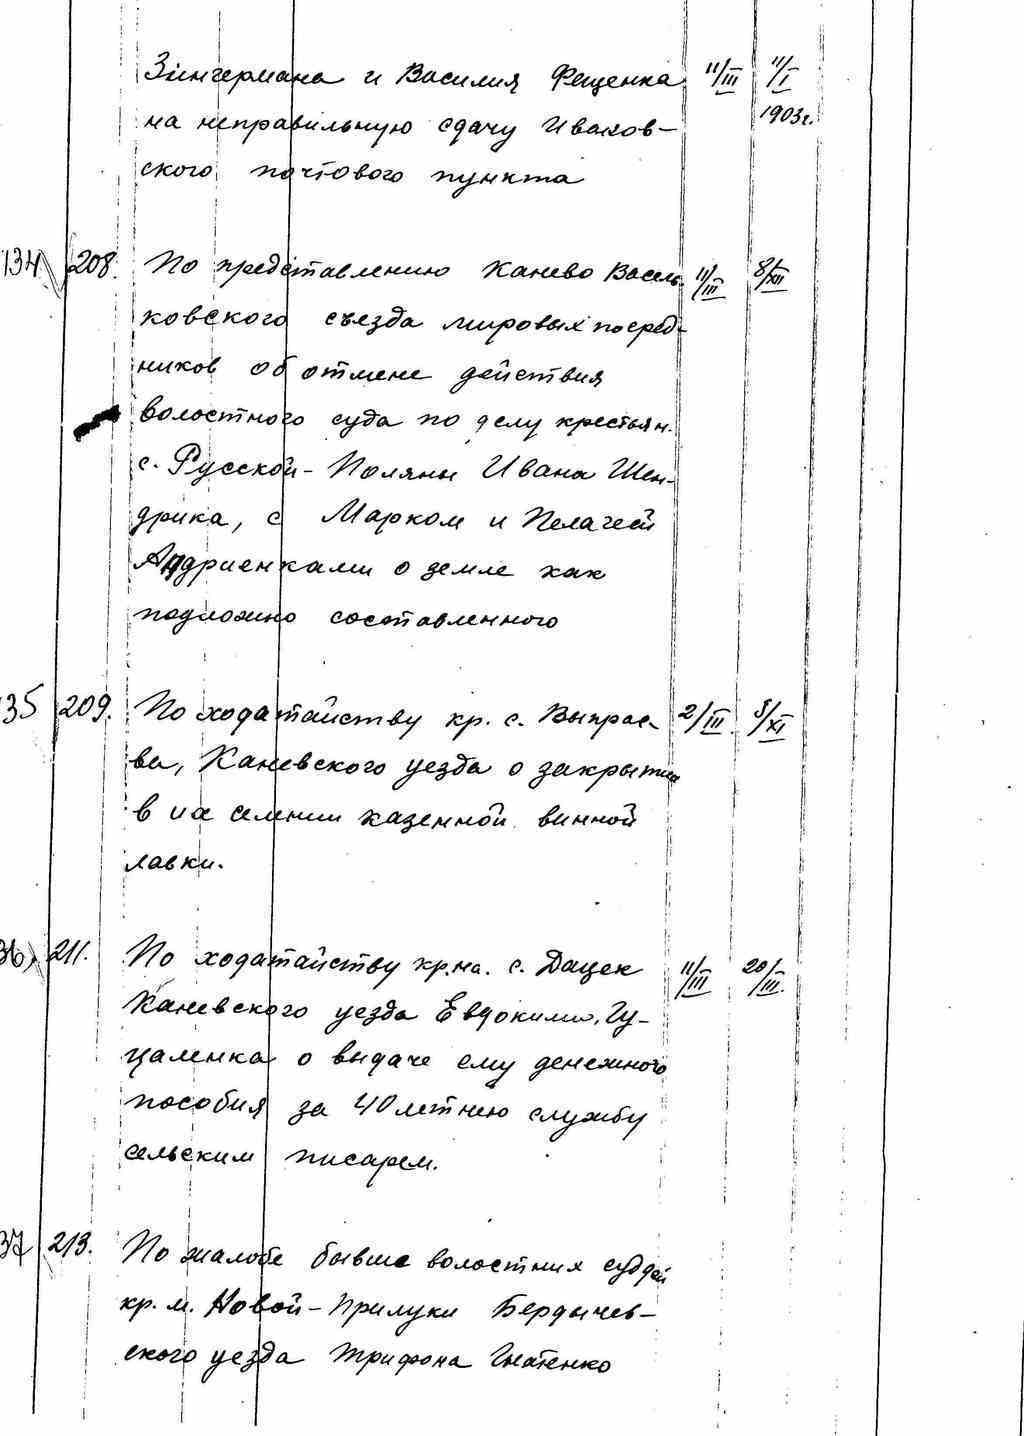 Зингермана и Василия Фещенка 11/III 11/I
на неправильную сдачу Иваков- 1903г.
ского почтового пункта
134 208. По представлению Канево Василь- 11/III 8/XII
ковского съезда мировых посред-
ников об отмене действия
волостного суда по делу крестьян.
с. Русской-Поляны Ивана Шен-
дрика, с Марком и Пелагеей
Андриенками о земле как
подложно составленного
135 209. По ходатайству кр. с. 2/III /XI
ва, Каневского уезда о закрытии
в их селении казенной винной
лавки.
136 211. По ходатайству кр-на. с. Дацек 11/III 20/III.
Каневского уезда Евдокима Гу-
цаленка о выдаче ему денежного
пособия за 40 летнею службу
сельским писарем.
137 213. По жалобе бывше волостных судей
кр. м. Новой-Прилуки Бердычев-
ского уезда Трифона Гнатенко